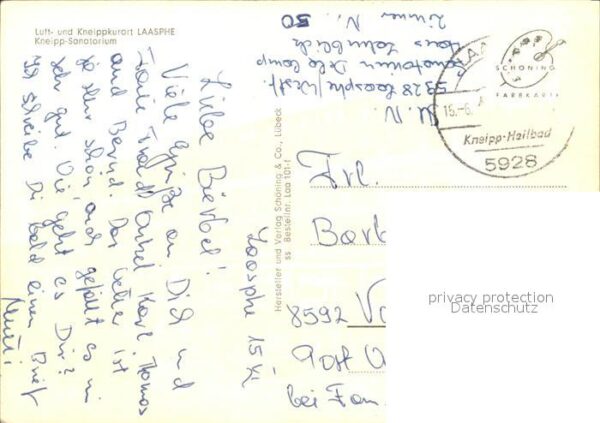 Luft- und Kneippkurort LAASPHE
Kneipp-Sanatorium
Laasphe 15.
Liebe Bärbel!
Viele Grüße an Dich und
Tante Onkel Karl, Thomas
und Bernd. Das Wetter ist
ja sehr schön, auch gefällt es mir
sehr gut. Wie geht es Dir?
Ich schreibe Dir bald einen Brief
Hersteller und Verlag Schöning & Co., Lübeck
ss Bestellnr. Laa 101-f
5928 Laasphe/Westf.
Sanatorium
Haus
Zimmer Nr. 50
SCHÖNING
FARBKARTE
15.-6.
Kneipp-Heilbad
5928
Frl.
Barb
8592
Post
bei Fam.
privacy protection
Datenschutz